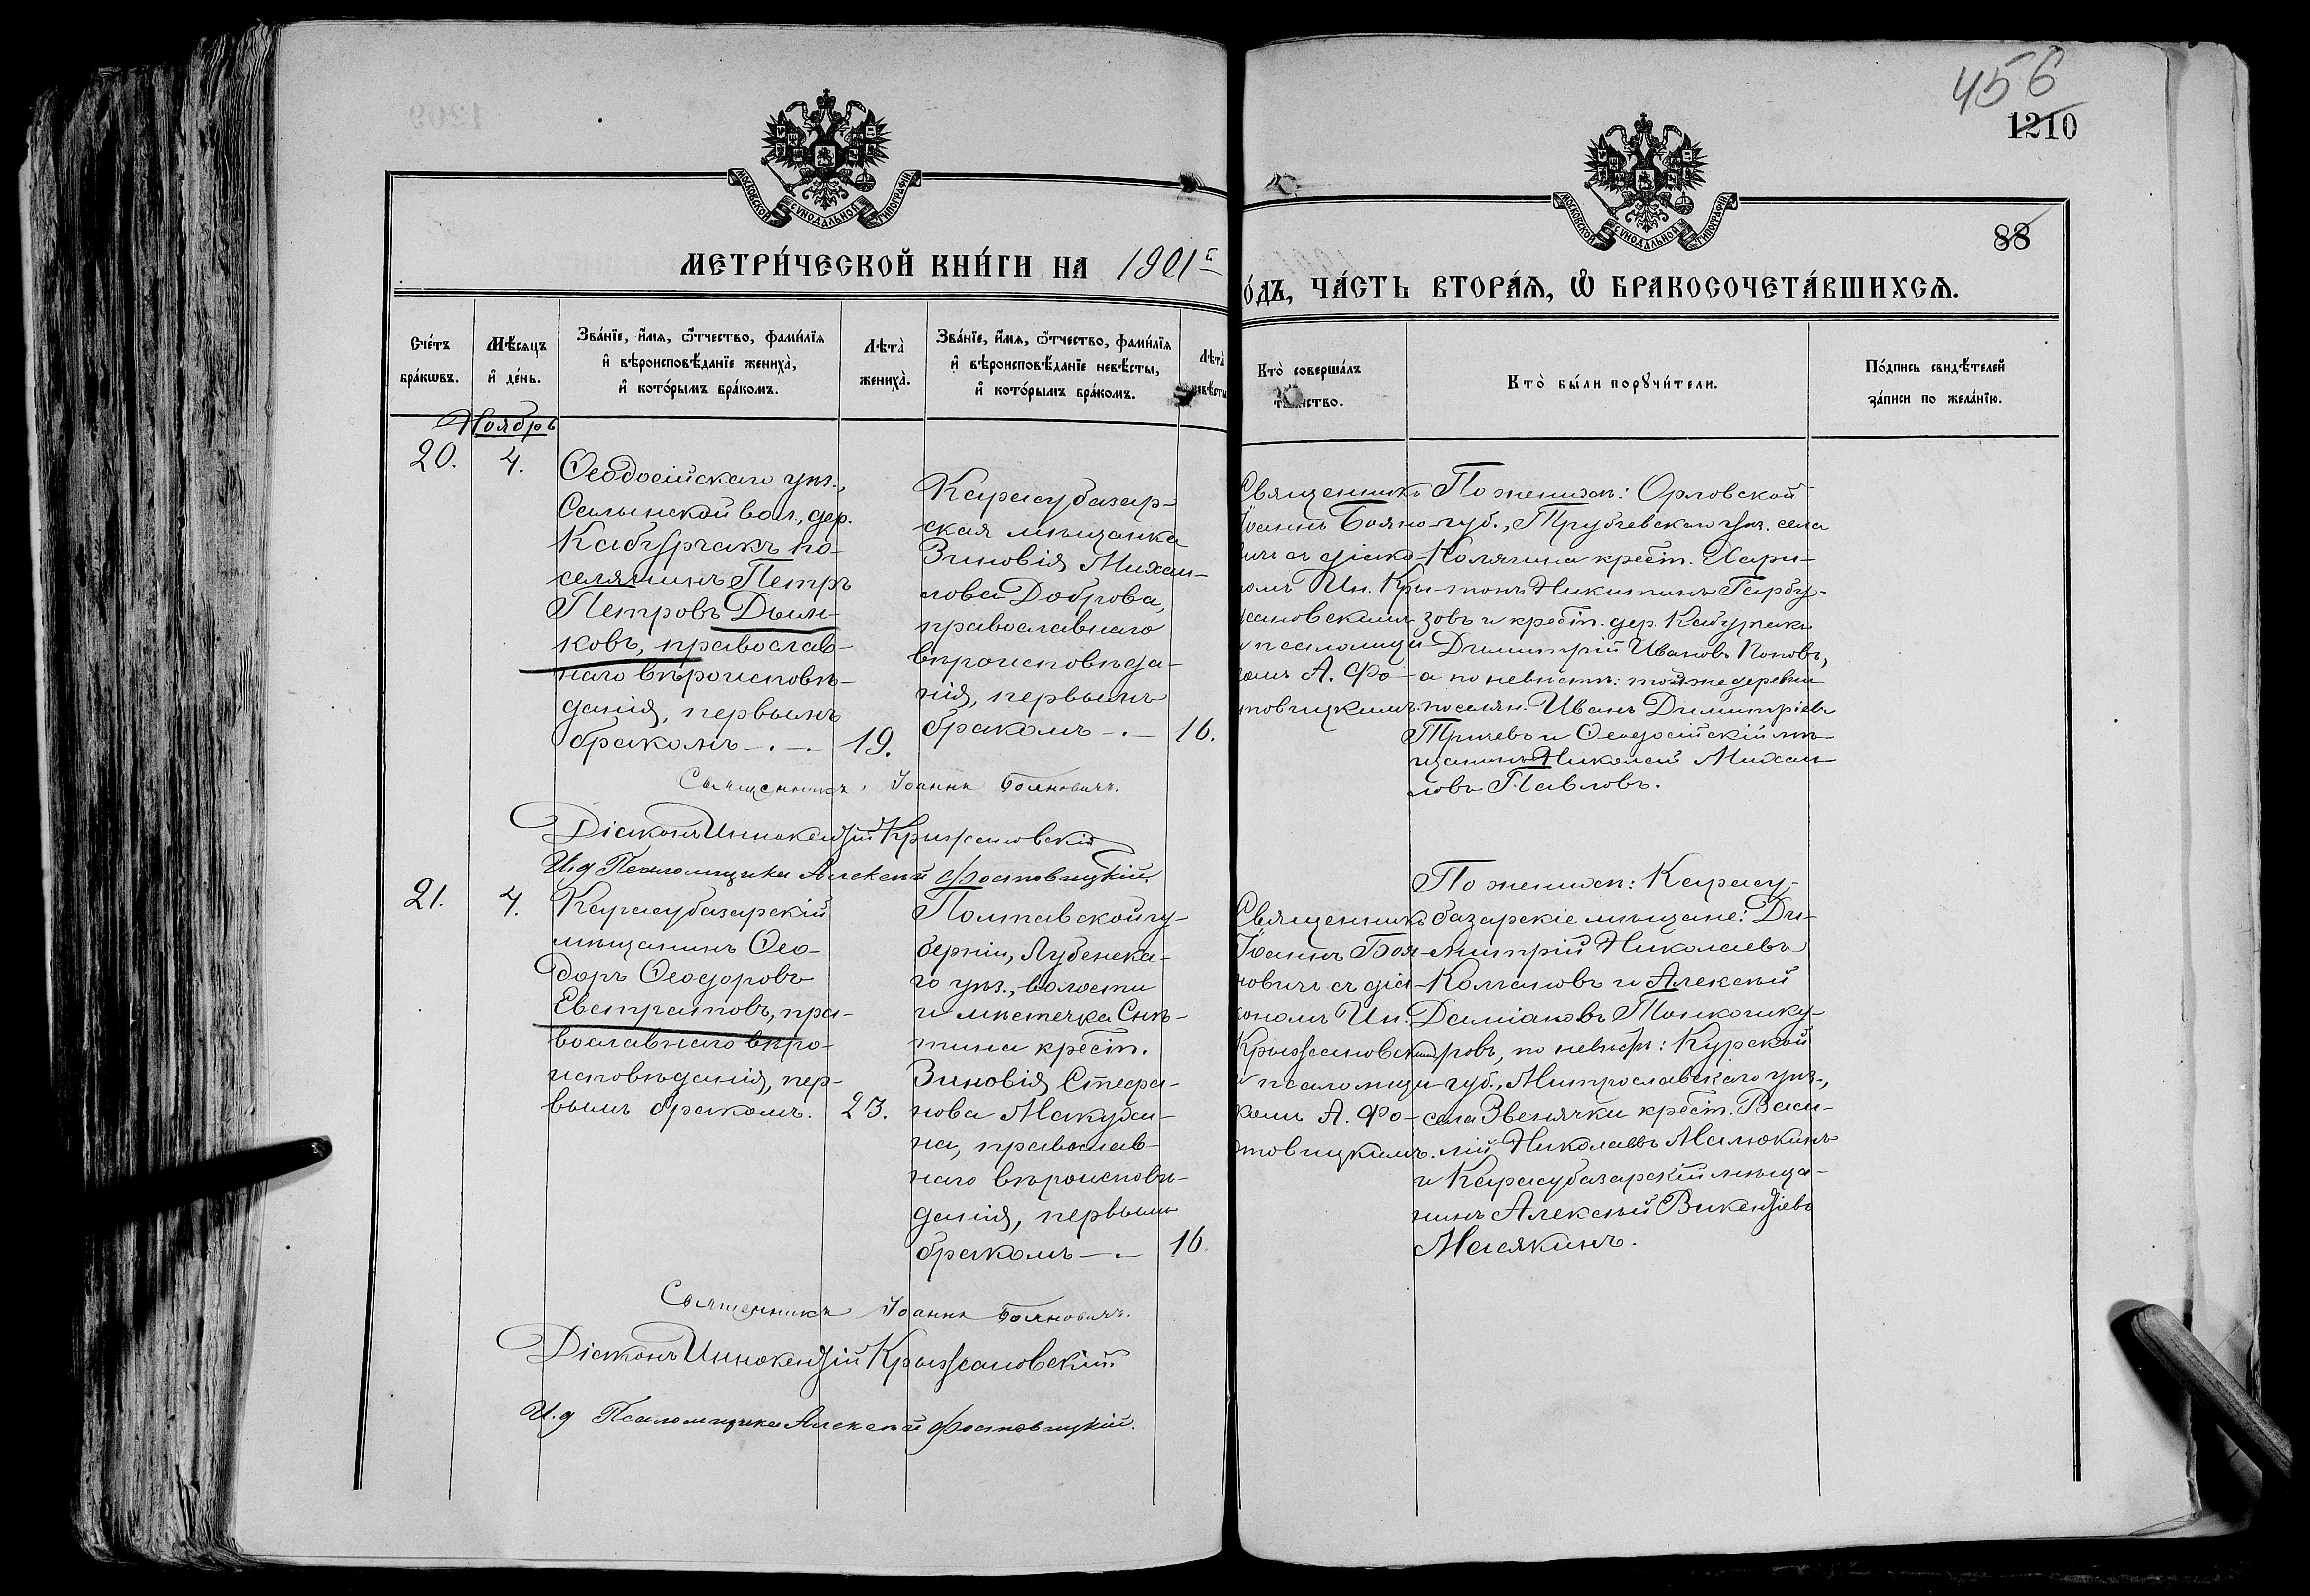 456
1210
88
МОСКОВСКОЙ СѴНОДАЛЬНОЙ ТИПОГРАФІИ
МОСКОВСКОЙ СѴНОДАЛЬНОЙ ТИПОГРАФІИ
МЕТРИ́ЧЕСКОЙ КНИ́ГИ НА 1901й
О́ДЪ, ЧА́СТЬ ВТОРА́Ѧ, Ѡ҆ БРАКОСОЧЕТА́ВШИХСѦ.
Сче́тъ
бра́кωвъ.
Мѣ́сѧцъ
и҆ де́нь.
Зва́нїе, и҆́мѧ, ѻ҆́тчество, фами́лїѧ
и҆ вѣроисповѣ́данїе жениха̀,
и҆ кото́рымъ бра́комъ.
Лѣта̀
жениха̀.
Зва́нїе, и҆́мѧ, ѻ҆́тчество, фами́лїѧ
и҆ вѣроисповѣ́данїе невѣ́сты,
и҆ кото́рымъ бра́комъ.
Лѣта̀
невѣ́сты
Кто̀ соверша́лъ
таинство.
Кто̀ бы́ли порꙋчи́тели.
По́дпись свидѣ́телей
за́писи по жела́нїю.
Ноябрь
20.
4.
Ѳеодосійскаго уѣз.,
Салынской вол., дер.
Кабурчакъ по-
селянинъ Петръ
Петровъ Дым-
ковъ, православ-
наго вѣроисповѣ-
данія, первымъ
бракомъ -.-.
19.
Карасубазар-
ская мѣщанка
Зиновія Михаи-
лова Доброва,
православнаго
вѣроисповѣда-
нія, первымъ
бракомъ -.-
16.
Священникъ
Іоаннъ Бояно-
вичъ съ діако-
номъ Ин. Кры-
жановскимъ
и псаломщи-
комъ А. Фо-
товицкимъ.
По женихѣ: Орловской
губ., Трубчевскаго уѣз. села
Колячина крест. Хари-
тонъ Никитинъ Гарбу-
зовъ и крест. дер. Кабурчакъ
Димитрій Ивановъ Поповъ,
а по невѣстѣ: той же деревни
поселян. Иванъ Димитріевъ
и Ѳеодосійскій мѣ-
щанинъ Николай Михаи-
ловъ Павловъ.
Священникъ Іоаннъ Бояновичъ.
Діаконъ Иннокентій Крыжановскій
И. д. Псаломщика Алексѣй Фостовицкій.
21.
4.
Карасубазарскій
мѣщанинъ Ѳео-
доръ Ѳеодоровъ
Евстратовъ, пра-
вославнаго вѣро-
исповѣданія, пер-
вымъ бракомъ.
23.
Полтавской гу-
берніи, Лубенска-
го уѣз., волости
и мѣстечка Снѣ-
тина крест.
Зиновія Стефа-
нова Макуха-
на, православ-
наго вѣроисповѣ-
данія, первымъ
бракомъ -.-
16.
Священникъ
Іоаннъ Боя-
новичъ съ діа-
кономъ Ин.
Крыжановскимъ
и псаломщи-
комъ А. Фо-
товицкимъ.
По женихѣ: Карасу-
базарскіе мѣщане: Ди-
митрій Николаевъ
Колпаковъ и Алексѣй
Даміановъ Тонкошку-
ровъ, по невѣстѣ: Курской
губ., Митрославскаго уѣз.,
села Звенячки крест. Васи-
лій Николаевъ Малюкинъ
и Карасубазарскій мѣща-
нинъ Алексѣй Викентіевъ
Масякинъ.
Священникъ Іоаннъ Бояновичъ.
Діаконъ Иннокентій Крыжановскій.
И. д Псаломщика Алексѣй Фостовицкій.